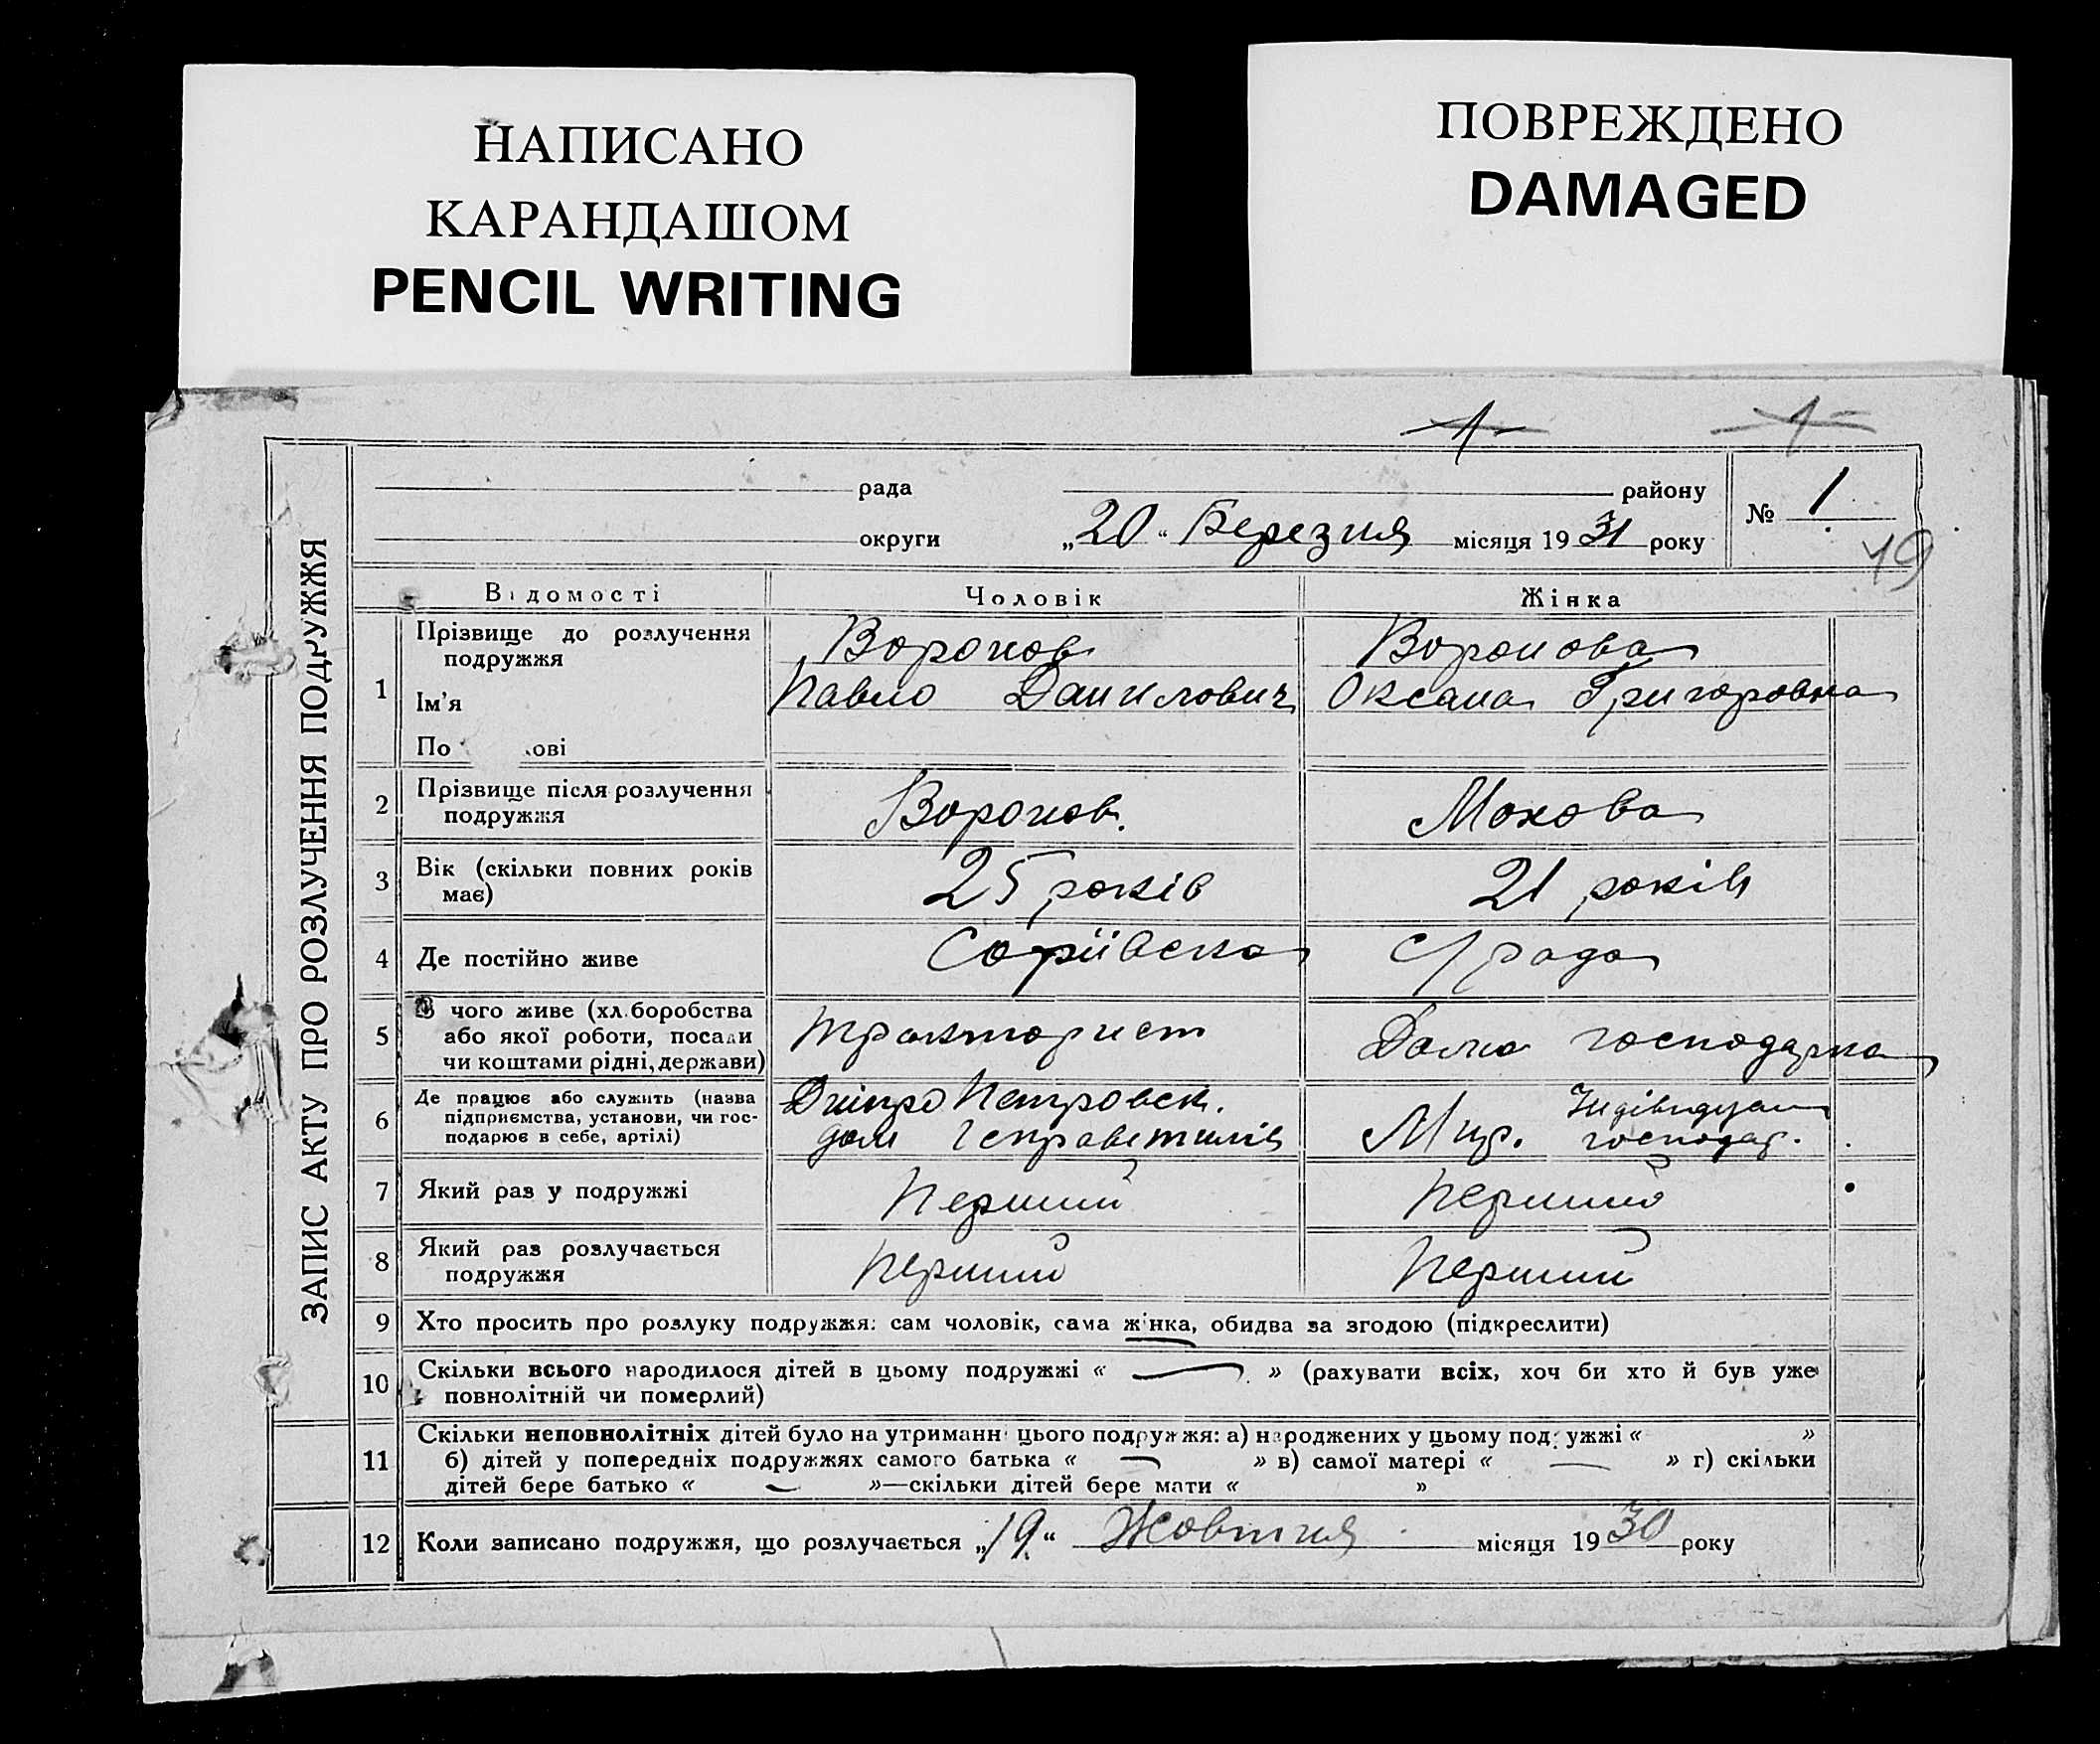 НАПИСАНО
КАРАНДАШОМ
PENCIL WRITING
ПОВРЕЖДЕНО
DAMAGED
1
1
ЗАПИС АКТУ ПРО РОЗЛУЧЕННЯ ПОДРУЖЖЯ
рада района
округи „20“ Березня місяця 1931 року
№ 1
19
Відомості Чоловік Жінка
1 Прізвище до розлучення подружжя Воронов Воронова
Ім'я Павло Данилович Оксана Григоровна
По ові
2 Прізвище після розлучення
подружжя Воронов. Мохова
3 Вік (скільки повних років
має) 25 років 21 років
4 Де постійно живе с/рада
5 З чого живе (хл боробства
або якої роботи, посади
чи коштами рідні, держави) тракторист Домо господарка
6 Де працює або служить (назва
підприємства, установи, чи гос-
подарює в себе, артілі) Дніпропетровск. дом Индівидуал господар.
7 Який раз у подружжі Перший Перший
8 Який раз розлучається
подружжя Перший Перший
9 Хто просить про розлуку подружжя: сам чоловік, сама жінка, обидва за згодою (підкреслити)
10 Скільки всього народилося дітей в цьому подружжі « — » (рахувати всіх, хоч би хто й був уже
повнолітній чи померлий)
11 Скільки неповнолітніх дітей було на утриманні цього подружжя: а) народжених у цьому подружжі « »
б) дітей у попередніх подружжях самого батька « — » в) самої матері « — » г) скільки
дітей бере батько « — »—скільки дітей бере мати « »
12 Коли записано подружжя, що розлучається „19“ Жовтня місяця 1930 року